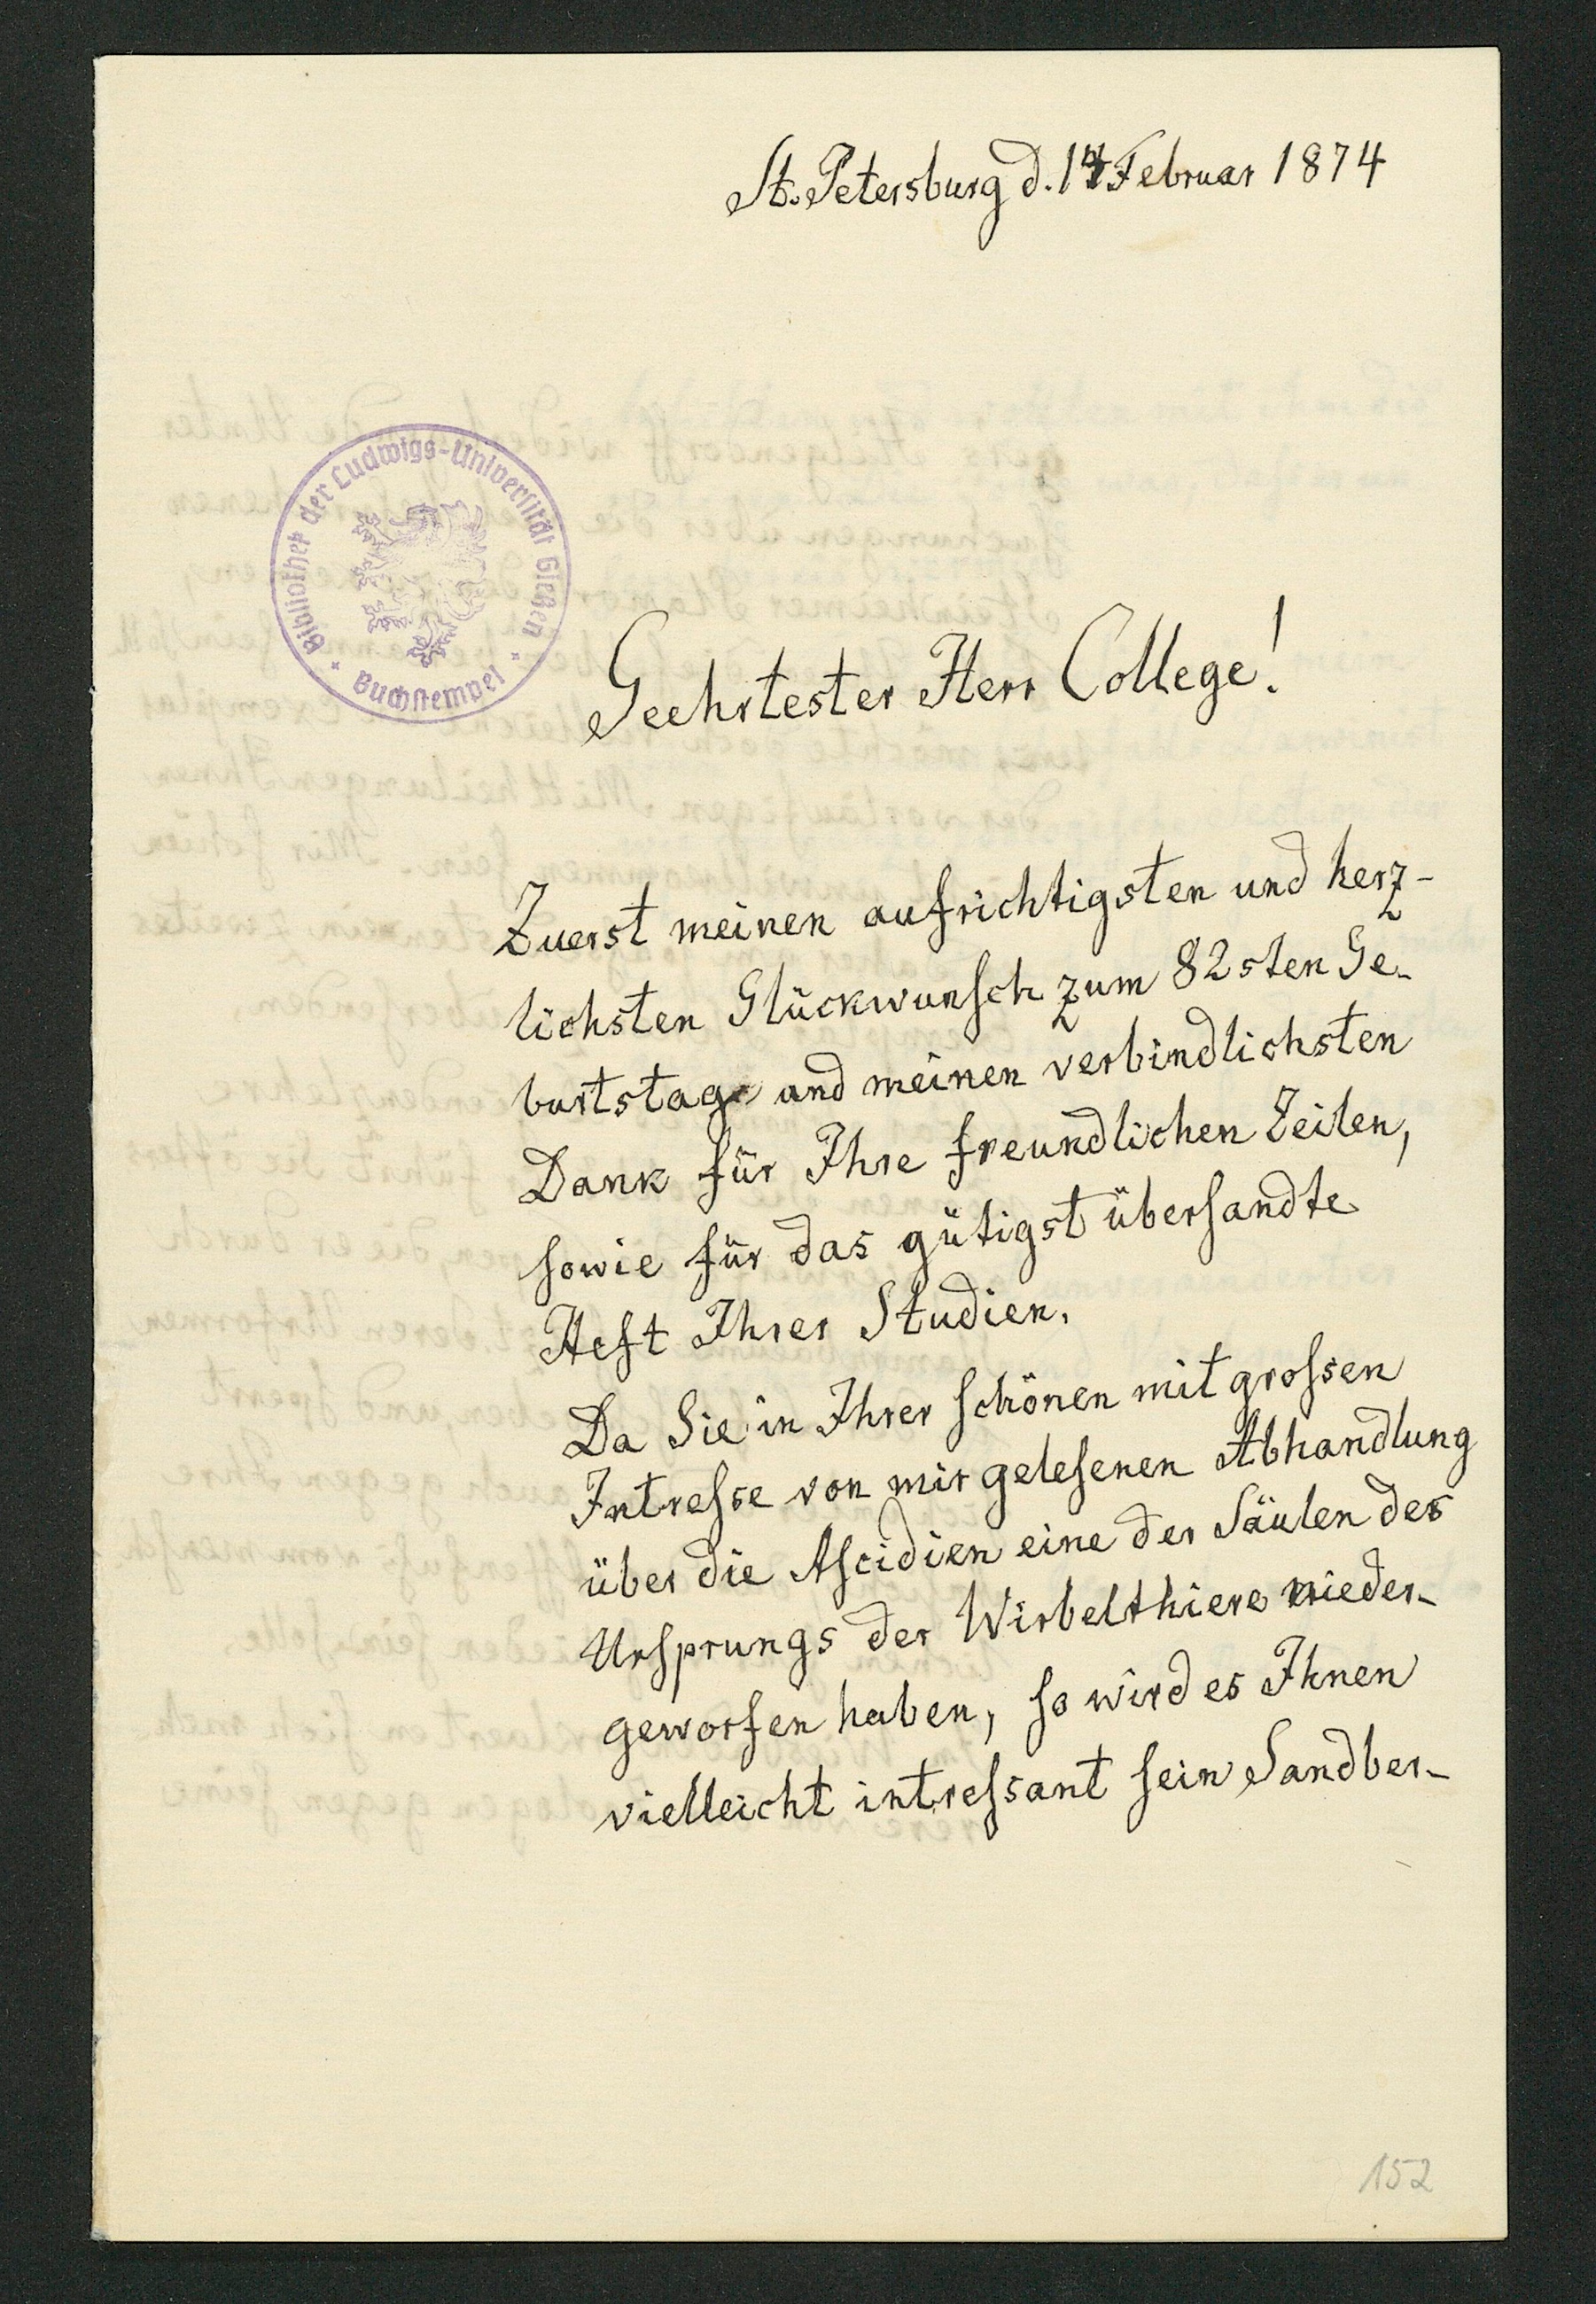 St. Petersburg d. 14 Februar 1874
Bibliothek der Ludwigs-Universität Gießen
Buchstempel
Geehrtester Herr College!
Zuerst meinen aufrichtigsten und herz-
lichsten Glückwunsch zum 82sten Ge-
burtstage und meinen verbindlichsten
Dank für Ihre freundlichen Zeilen,
sowie für das gütigst übersandte
Heft Ihrer Studien.
Da Sie in Ihrer schönen mit grossen
Intresse von mir gelesenen Abhandlung
über die Ascidien eine der Säulen des
Ursprungs der Wirbelthiere nieder-
geworfen haben, so wird es Ihnen
vielleicht intressant sein Sandber-
152